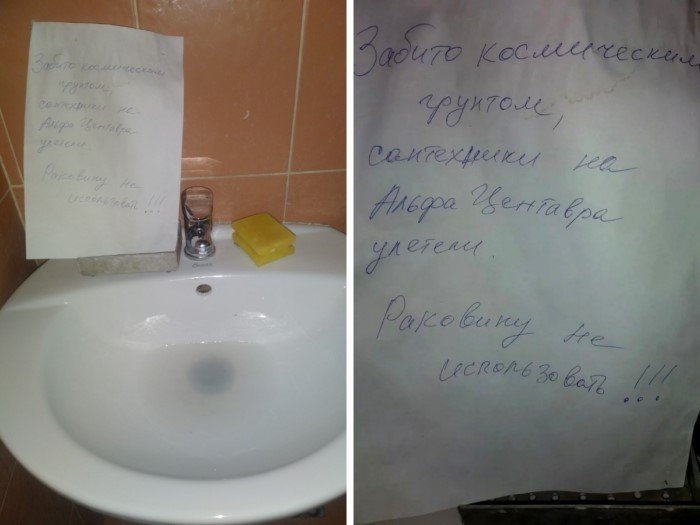 Забито космическим
грунтом,
сантехники на
Альфа Центавра
улетели.
Раковину не
использовать!!!
Забито космическим
грунтом,
сантехники на
Альфа Центавра
улетели.
Раковину не
использовать!!!